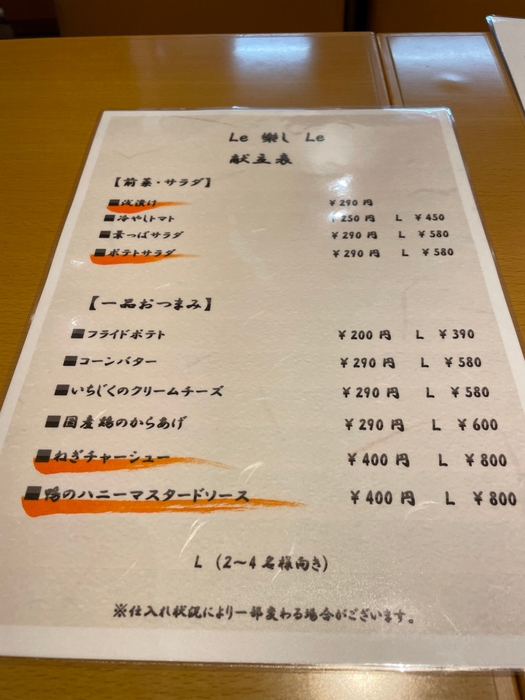 Le 樂し Le
献立表
【前菜・サラダ】
■浅漬け ￥290 円
■冷やしトマト ￥250 円 L ￥450
■葉っぱサラダ ￥290 円 L ￥580
■ポテトサラダ ￥290 円 L ￥580
【一品おつまみ】
■フライドポテト ￥200 円 L ￥390
■コーンバター ￥290 円 L ￥580
■いちじくのクリームチーズ ￥290 円 L ￥580
■国産鶏のからあげ ￥290 円 L ￥600
■ねぎチャーシュー ￥400 円 L ￥800
■鴨のハニーマスタードソース ￥400 円 L ￥800
L (2～4 名様向き)
※仕入れ状況により一部変わる場合がございます。